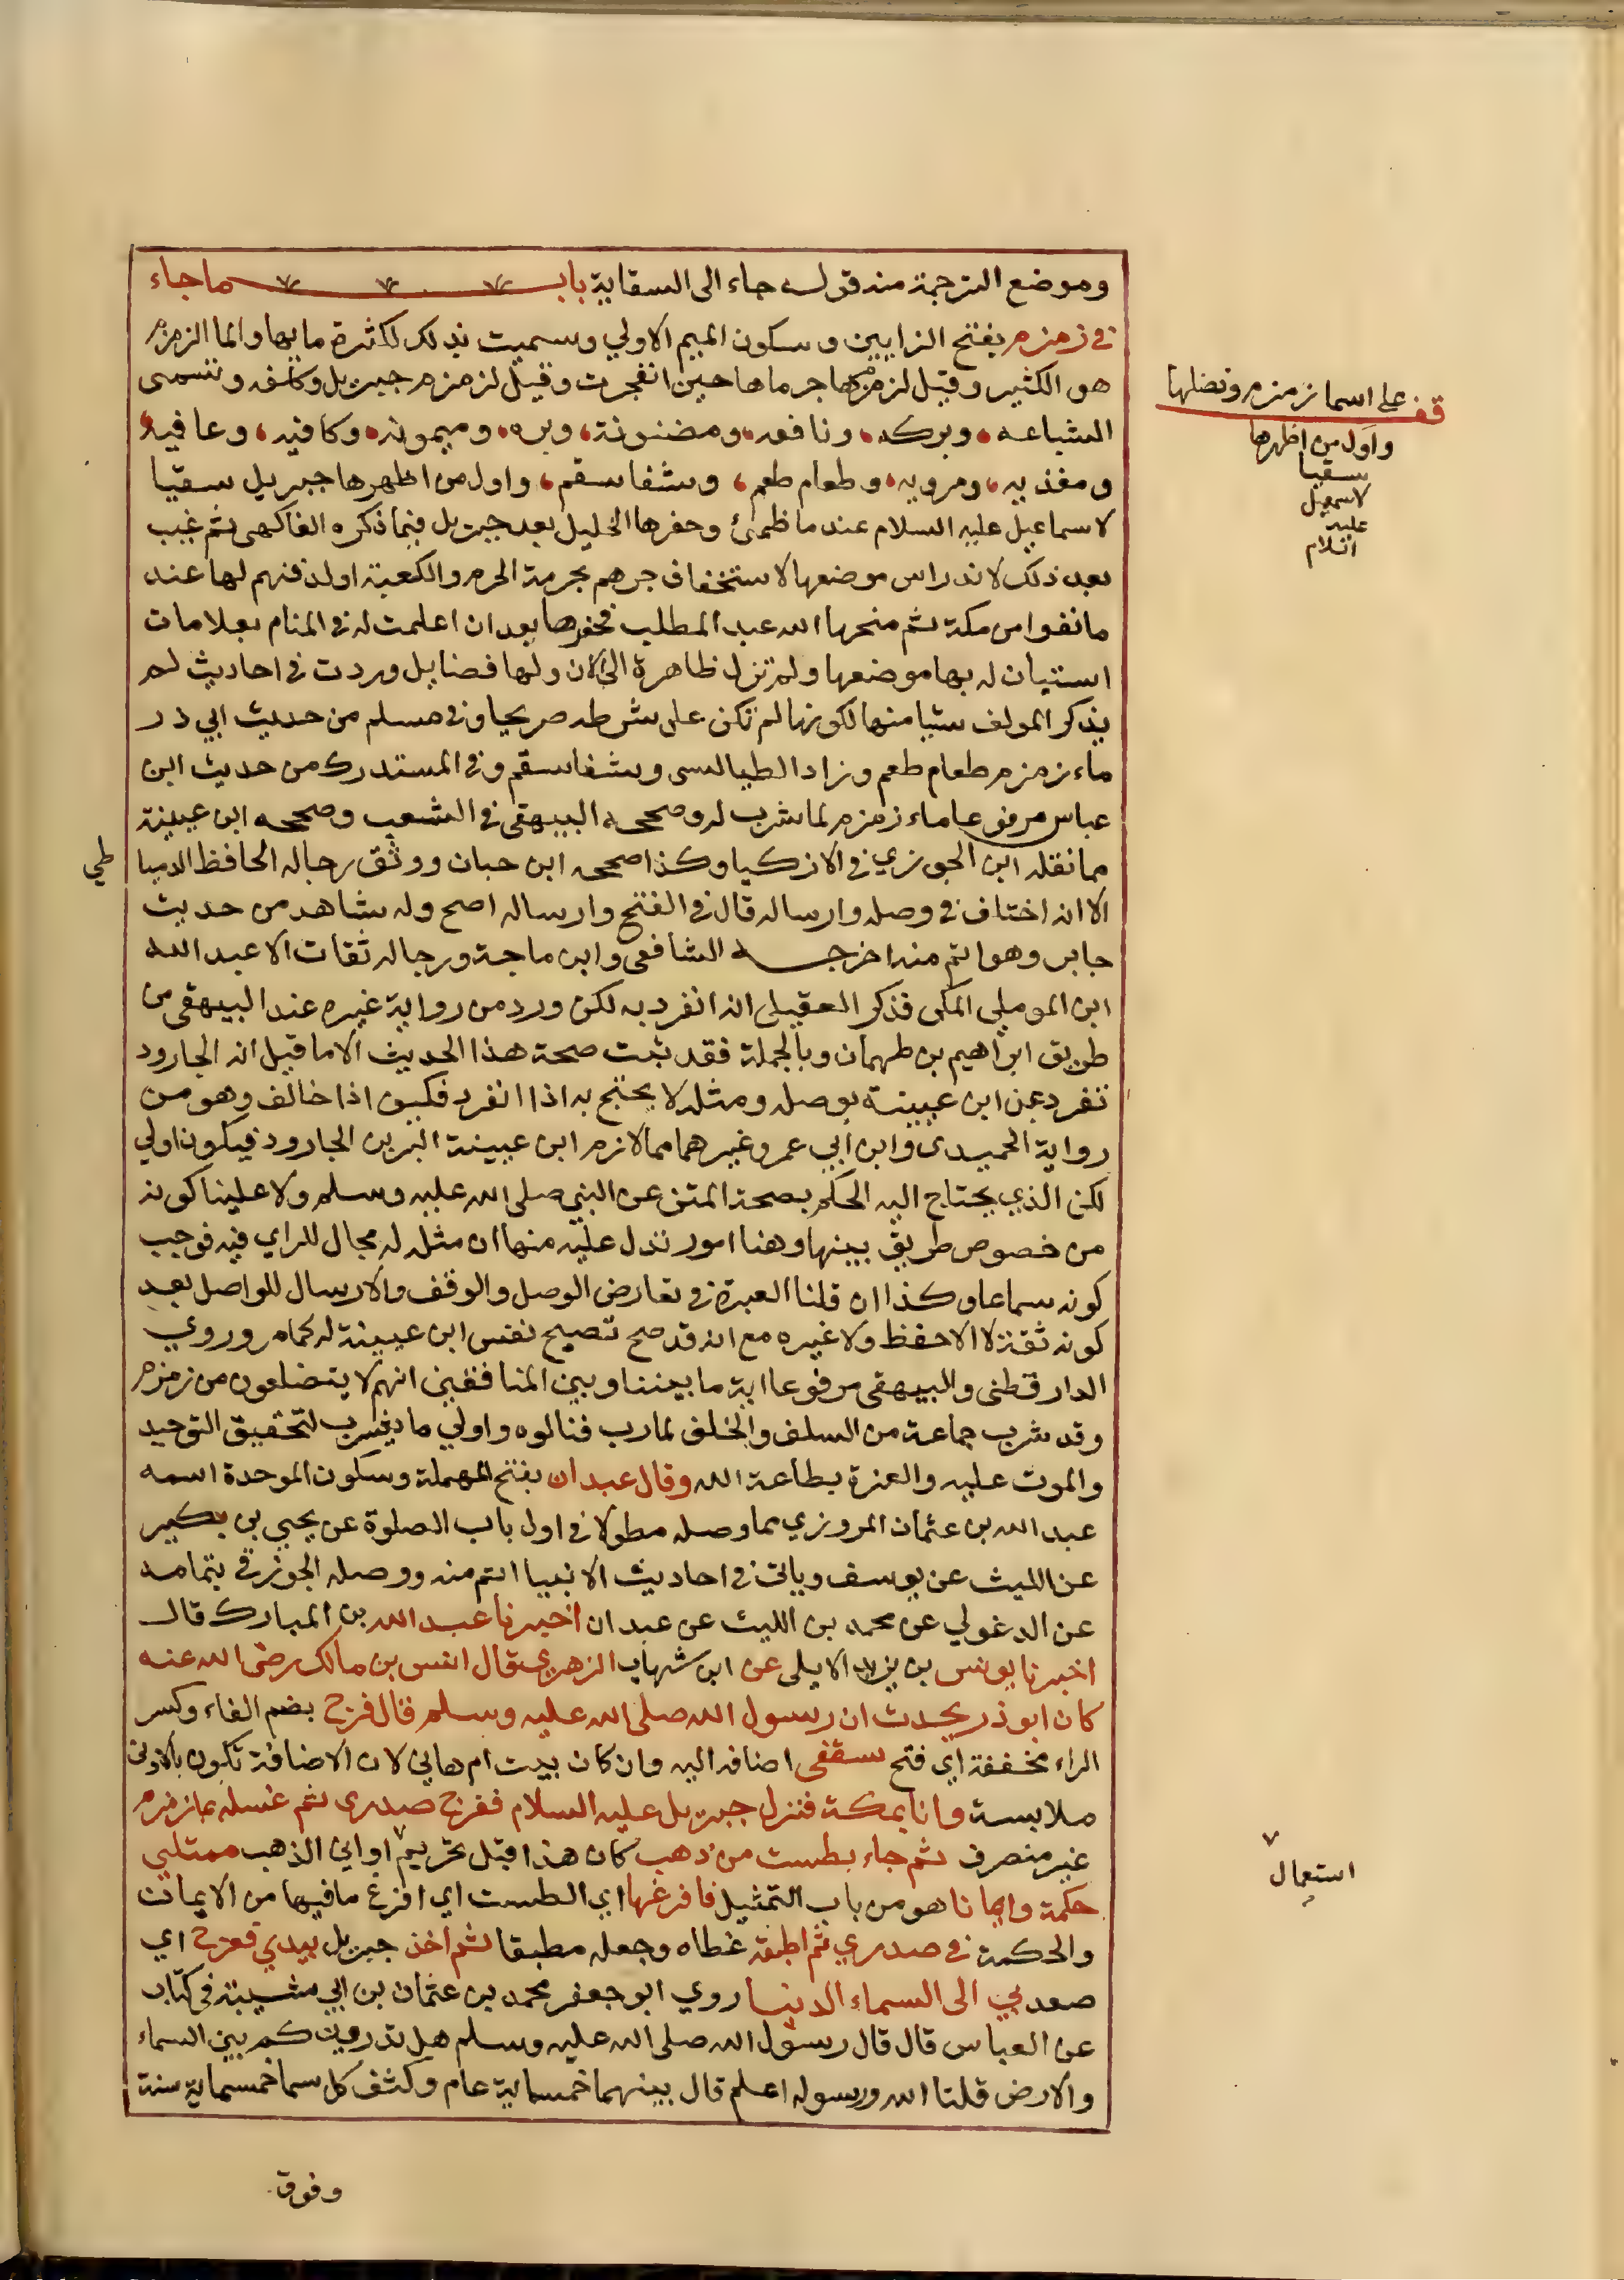 وموضع الترجمة منه قوله جاء الى السقاية باب ما جاء
في زمزم بفتح الزايين وسكون الميم الاولي وسميت بذلك لكثرة مايها والما الزمزم
هو الكثير وقيل لزم هاجر ماها حين انفجرت وقيل لزمزمة جبريل وكلامه وتسمى
الشباعه وبركه ونافعه ومضنونة وبره وميمونه وكافيه وعافيه
ومغذيه ومرويه وطعام طعم وشفا سقم واول من اظهرها جبريل سقيا
لاسماعيل عليه السلام عند ما ظمئ وحفرها الخليل بعد جبريل فيما ذكره الفاكهى ثم غيبت
بعد ذلك لاندراس موضعها لاستخفاف جرهم بحرمة الحرم والكعبة اولدفنهم لها عند
ما نفوا من مكة ثم منحها الله عبد المطلب فحفرها بعد ان اعلمت له في المنام بعلامات
استبان له بها موضعها ولم تزل ظاهرة الى الان ولها فضايل وردت في احاديث لم
يذكر المولف شيا منها لكونها لم تكن على شرطه صريحا وفي مسلم من حديث ابي ذر
ماء زمزم طعام طعم وزاد الطيالسى وشفا سقم وفي المستدرك من حديث ابن
عباس مرفوعا ماء زمزم لما شرب له وصححه البيهقى في الشعب وصححه ابن عيينة
مما نقله ابن الجوزي في الاذكيا وكذا صححه ابن حبان ووثق رجاله الحافظ الدميا
طي
الا انه اختلف في وصله وارساله قال في الفتح وارساله اصح وله شاهد من حديث
جابر وهو اتم منه اخرجه الشافعى وابن ماجة ورجاله ثقات الا عبد الله
ابن الموملي المكى فذكر العقيلى انه انفرد به لكن ورد من رواية غيره عند البيهقى من
طريق ابراهيم بن طهمان وبالجملة فقد ثبت صحة هذا الحديث الا ما قيل ان الجارود
تفرد عن ابن عيينة بوصله ومثله لا يحتج به اذا انفرد فكيف اذا خالف وهو من
رواية الحميدى وابن ابي عمر وغيرهما ممالازم ابن عيينة اكبر من الجارود فيكون اولي
لكن الذي يحتاج اليه الحكم بصحة المتن عن النبي صلى الله عليه وسلم ولا علينا كونه
من خصوص طريق بينها وهنا امور تدل عليه منها ان مثله له مجال للراي فيه فوجب
كونه سماعا وكذا ان قلنا العبرة في تعارض الوصل والوقف والارسال للواصل بعد
كونه ثقة لا الاحفظ ولا غيره مع انه قد صح تصحيح نفس ابن عيينة له كما مر وروي
الدارقطنى والبيهقى مرفوعا اية ما بيننا وبين المنافقين انهم لا يتضلعون من زمزم
وقد شرب جماعة من السلف والخلف لمارب فنالوه واولي ما يشرب لتحقيق التوحيد
والموت عليه والعزة بطاعة الله وقال عبدان بفتح المهملة وسكون الموحدة اسمه
عبد الله بن عثمان المروزي مما وصله مطولا في اول باب الصلوة عن يحيي بن بكير
عن الليث عن يوسف وياتى في احاديث الانبيا اتم منه ووصله الجوزقي بتمامه
عن الدغولي عن محمد بن الليث عن عبدان اخبرنا عبد الله بن المبارك قال
اخبرنا يونس بن يزيد الايلى عن ابن شهاب الزهري قال انس بن مالك رضى الله عنه
كان ابو ذر يحدث ان رسول الله صلى الله عليه وسلم قال فرج بضم الفاء وكسر
الراء مخففة اي فتح سقفى اضافه اليه وان كان بيت ام هاني لان الاضافة تكون بالادنى
ملابسة وانا بمكة فنزل جبريل عليه السلام ففرج صدرى ثم غسله بماء زمزم
غير منصرف ثم جاء بطست من ذهب كان هذا قبل تحريم اواني الذهب ممتلي
حكمة وايمانا هو من باب التمثيل فافرغها اي الطست اي افرغ ما فيها من الايمان
والحكمة في صدري ثم اطبقه غطاه وجعله مطبقا ثم اخذ جبريل بيدي فعرج اي
صعد بي الى السماء الدنيا روي ابو جعفر محمد بن عثمان بن ابي شيبة في كتاب
عن العباس قال قال رسول الله صلى الله عليه وسلم هل تدرون كم بين السماء
والارض قلنا الله ورسوله اعلم قال بينهما خمسماية عام وكثف كل سما خمسماية سنة
وفوق
قف على اسما زمزم وفضلها
واول من اظهرها
سقيا
لاسمعيل
عليه
السلام
استعمال